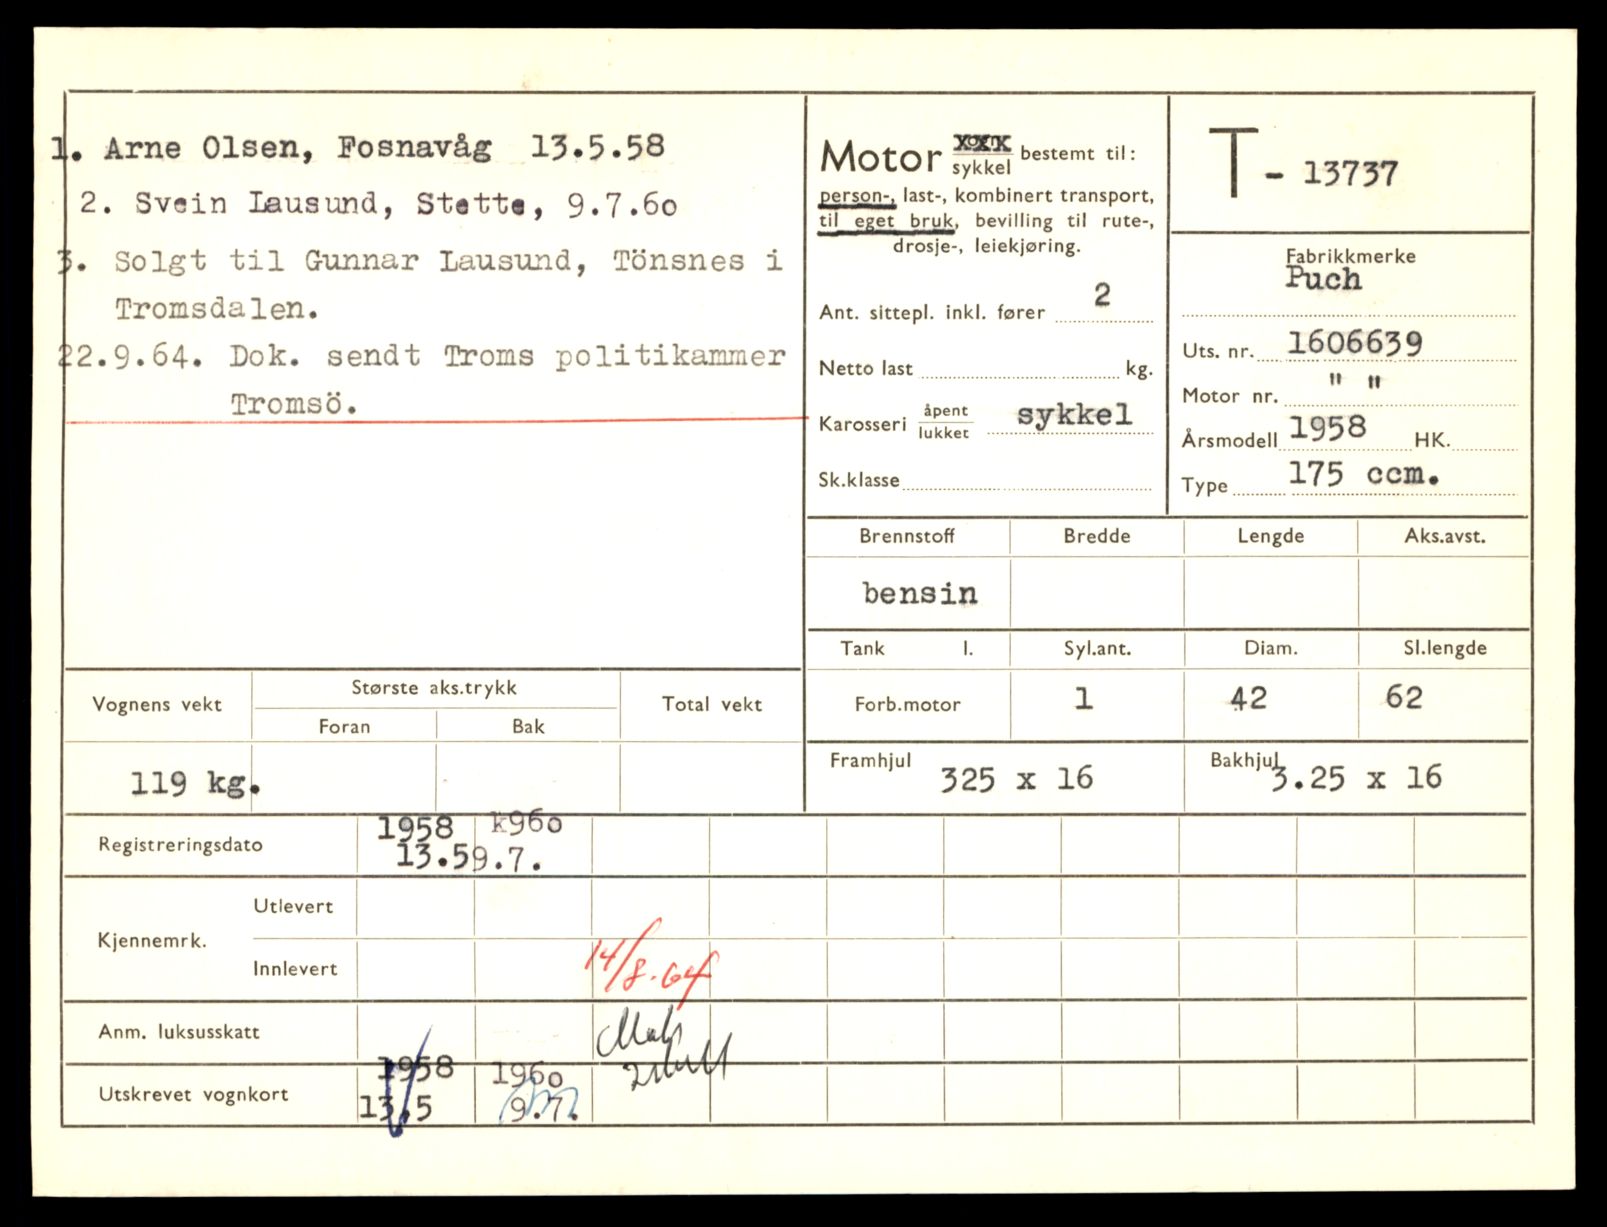 1. Arne Olsen, Fosnavåg 13.5.58
2. Svein Lausund, Stette, 9.7.6o
3. Solgt til Gunnar Lausund, Tönsnes i
Tromsdalen.
22.9.64. Dok. sendt Troms politikammer
Tromsö.
Motor vogn sykkel bestemt til:
person-, last-, kombinert transport,
til eget bruk, bevilling til rute-,
drosje-, leiekjøring.
Ant. sittepl. inkl. fører 2
Netto last kg.
Karosseri åpent lukket sykkel
Sk.klasse
T - 13737
Fabrikkmerke
Puch
Uts. nr. 1606639
Motor nr. " "
Årsmodell 1958 HK.
Type 175 ccm.
Brennstoff Bredde Lengde Aks.avst.
bensin
Tank l. Syl.ant. Diam. Sl.lengde
Forb.motor 1 42 62
Framhjul 325 x 16 Bakhjul 3.25 x 16
Vognens vekt Største aks.trykk Total vekt
Foran Bak
119 kg.
Registreringsdato 1958 k96o
13.5 9.7.
Kjennemrk. Utlevert
Innlevert 14/8-64
Anm. luksusskatt
Utskrevet vognkort 1958 196o
13.5 9.7.